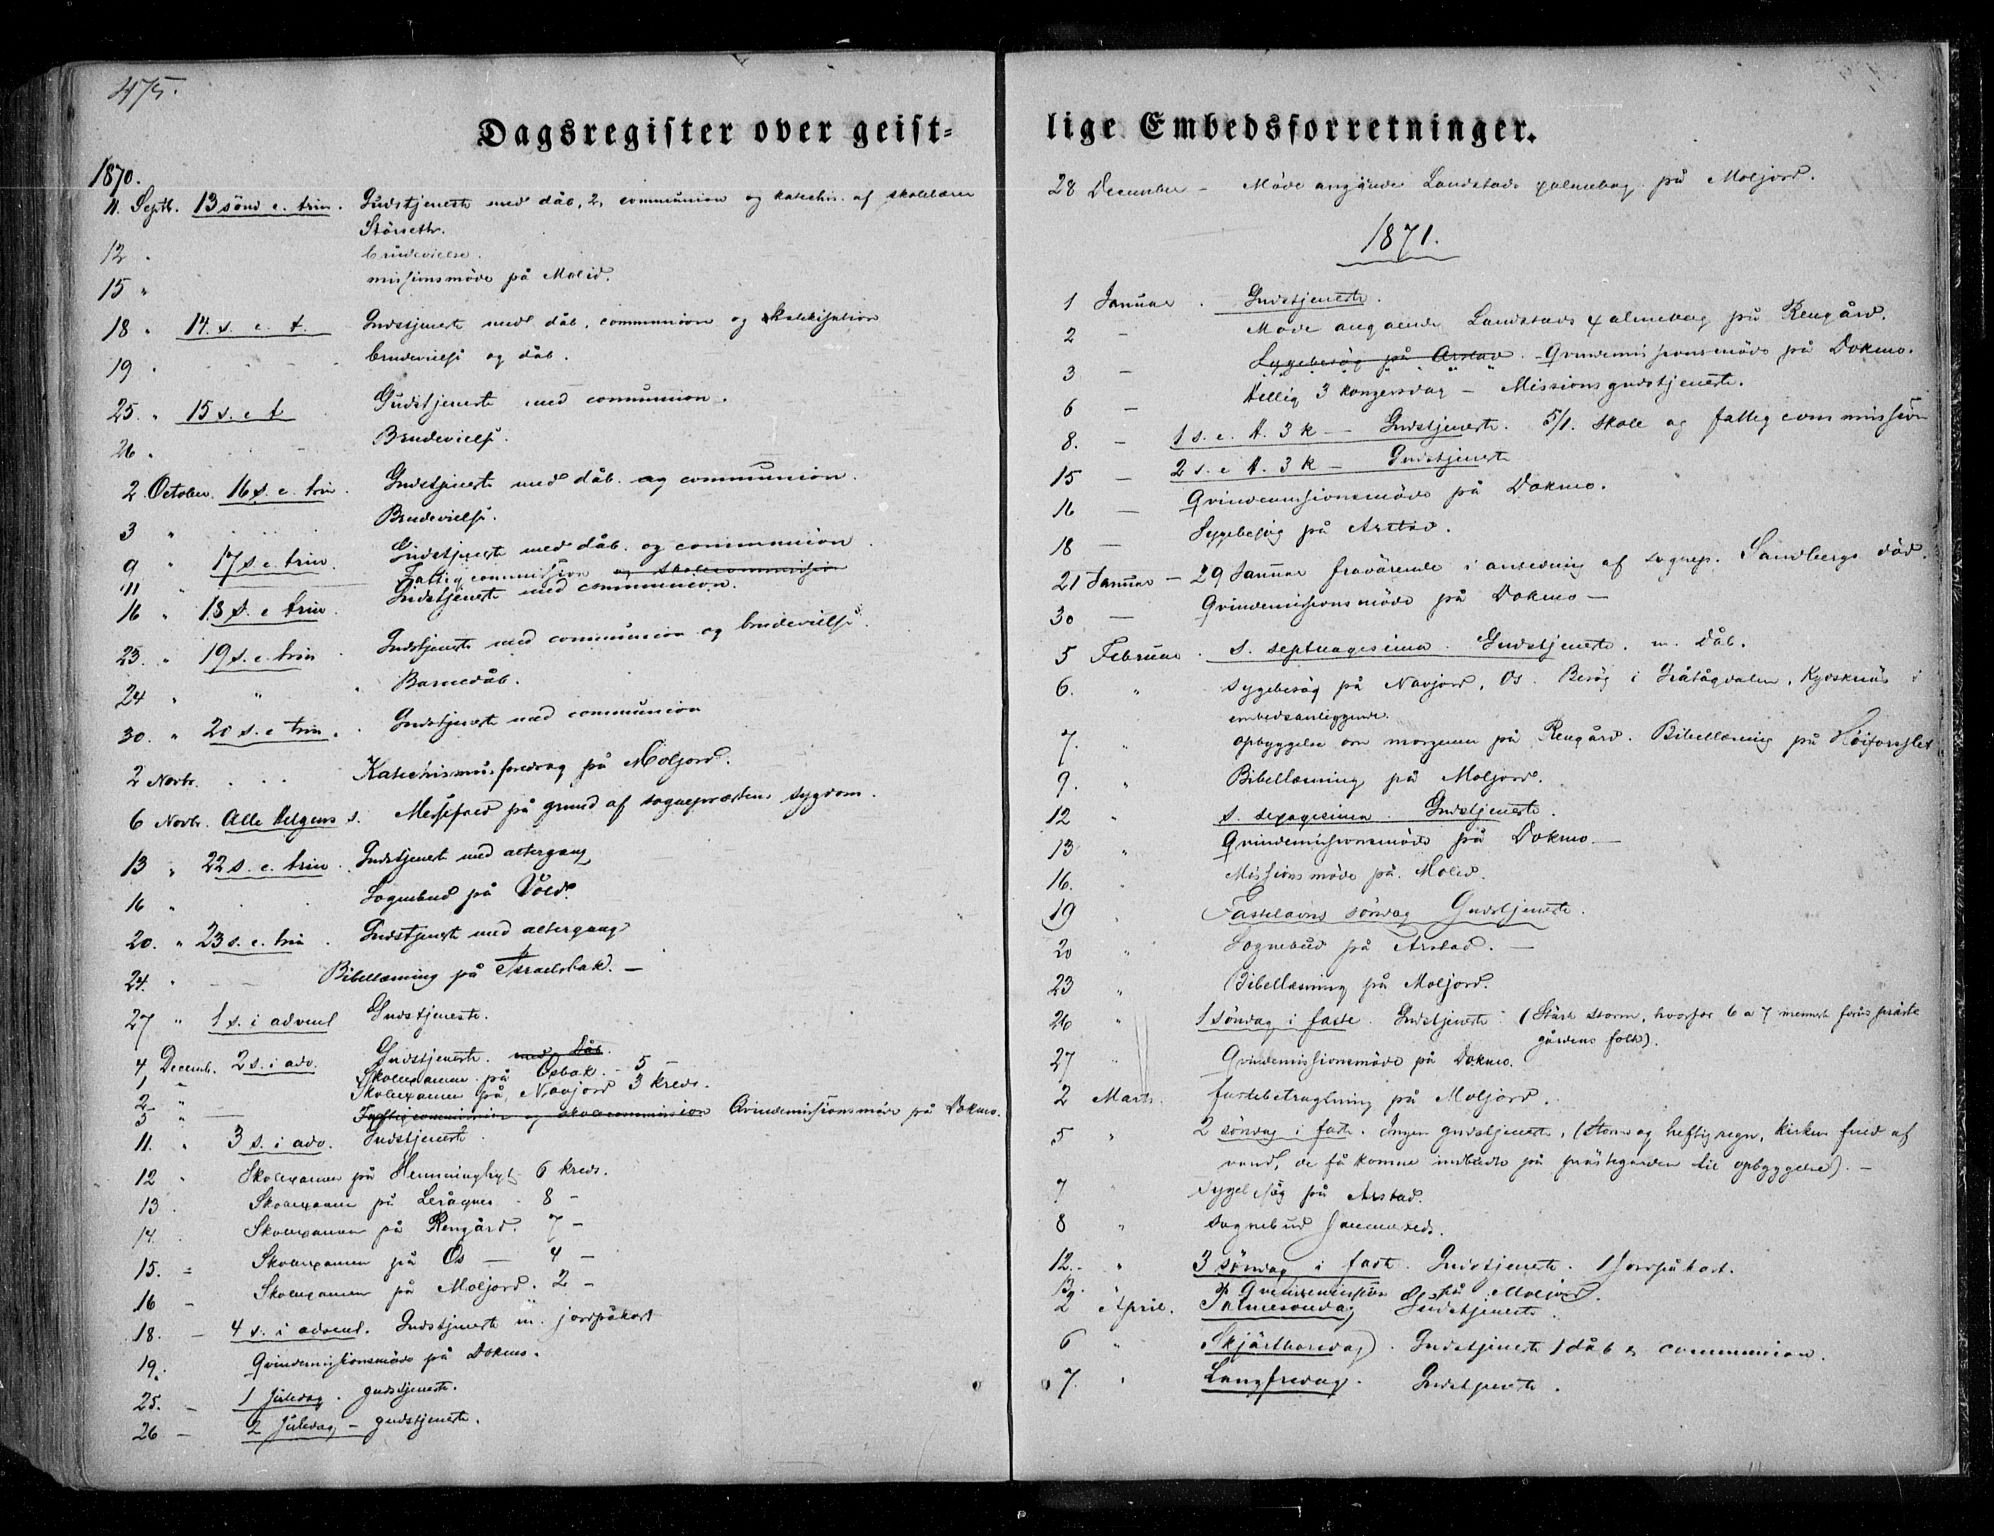 475.
Dagsregister over geist-
1870.
11. Septb. 13 sönd e. trin. Gudstjeneste med dåb, 2, communion og katechis. af skolelærer
Störseth.
12 " brudevielse.
15 " missionsmöde på Molid.
18 " 14. s. e. t. Gudstjeneste med dåb, communion og katekisation
19 " brudevielse og dåb.
25. " 15 s. e t Gudstjeneste med communion.
26 " Brudevielse.
2 October. 16 s. e. trin. Gudstjeneste med dåb. og communion.
3 " Brudevielse.
9 " 17 s e. trin. Gudstjeneste med dåb. og communion.
11 " Fattigcommission og skolecommission
16 " 18 s. e trin. Gudstjeneste med communion.
23. " 19 s. e. trin. Gudstjeneste med communion og brudevielse.
24 " " Barnedåb.
30. " 20 s. e trin. Gudstjeneste med communion
2 Novbr. Katechismusforedrag på Moljord.
6 Novbr. Alle Helgens s. Messefald på grund af sognepræstens sygdom.
13 " 22 s. e. trin. Gudstjeneste med altergang
16 " Sognebud på Vold.
20. " 23 s. e. trin. Gudstjeneste med altergang
24. " Bibellæsning på Israelsbak. —
27 " 1 s. i advent Gudstjeneste.
4 Decemb. 2 s. i adv. Gudstjeneste. med dåb.
1 " Skolexamen på Osbak. - 5 -
2 " Skolexamen på Navjord 3 kreds.
3 " — Fattigcommission og skolecommission Qvindemissionsmöde på Dokmo.
11. " 3 s. i adv. Gudstjeneste.
12 " Skolexamen på Hemminghyt 6 kreds.
13 Skolexamen på Leråqnes - 8 -
14. Skolexamen på Rengård. 7 -
15. - Skolexamen på Os — 4 -
16 - Skolexamen på Moljord. 2 -
18. - 4 s. i advent. Gudstjeneste m. jordpåkast
19. Qvindemissionsmöde på Dokmo.
25. - 1 Juledag. gudstjeneste.
26 - 2 Juledag - gudstjeneste.
lige Embedsforretninger.
28 December - Möde angående Landstads salmebog på Moljord.
1871.
1 Januar. Gudstjeneste.
2 - Möde angaaende Landstads salmebog på Rengård.
3 - Sygebesög på Arstad. Qvindemissionsmöde på Dokmo.
6 - Hellig 3 kongersdag - Missionsgudstjeneste.
8. - 1 s. e. H. 3 k - Gudstjeneste. 5/1. skole og fattigcommission
15 - 2 s. e H. 3 k - Gudstjeneste
16 - Qvindemissionsmöde på Dokmo.
18 - Sygebesög på Arstad.
21 Januar - 29 Januar fraværende i anledning af sognep. Sandbergs död.
30 - Qvindemissionsmöde på Dokmo -
5 Februar. s. septuagesima. Gudstjeneste. m. dåb.
6. " sygebesög på Navjord, Os. Besög i Gråtågdalen, Kydsknes i
embedsanliggende.
7. " opbyggelse om morgenen på Rengård. Bibellæsning på Höiforslet
9. " Bibellæsning på Moljord.
12 " s. sexagesima. Gudstjeneste.
13 " Qvindemissionsmöde på Dokmo. —
16. " Missionsmöde på Molid.
19 " Fastelavns söndag Gudstjeneste.
20 " Sognebud på Arstad. —
23 " Bibellæsning på Moljord.
26 " 1 söndag i faste. Gudstjeneste. (Stærk storm, hvorfor 6 a 7 mennesk foruden præste
gårdens folk).
27 " Qvindemissionsmöde på Dokmo.
2 Marts. fastebetragtning på Moljord.
5 " 2 söndag i faste. Ingen gudstjeneste, (Storm og heftig regn, kirken fuld af
vand, de få komne indbudte på præstegården til opbyggelse). —
7 " Sygebesög på Arstad.
8 " sognebud
12. " 3 söndag i faste. Gudstjeneste. 1 jordpåkast.
13. " Qvindemission på Moljord.
2 April. Palmesöndag Gudstjeneste.
6 " Skjærthorsdag. Gudstjeneste 1 dåb & communion.
7. " Langfredag. Gudstjeneste.